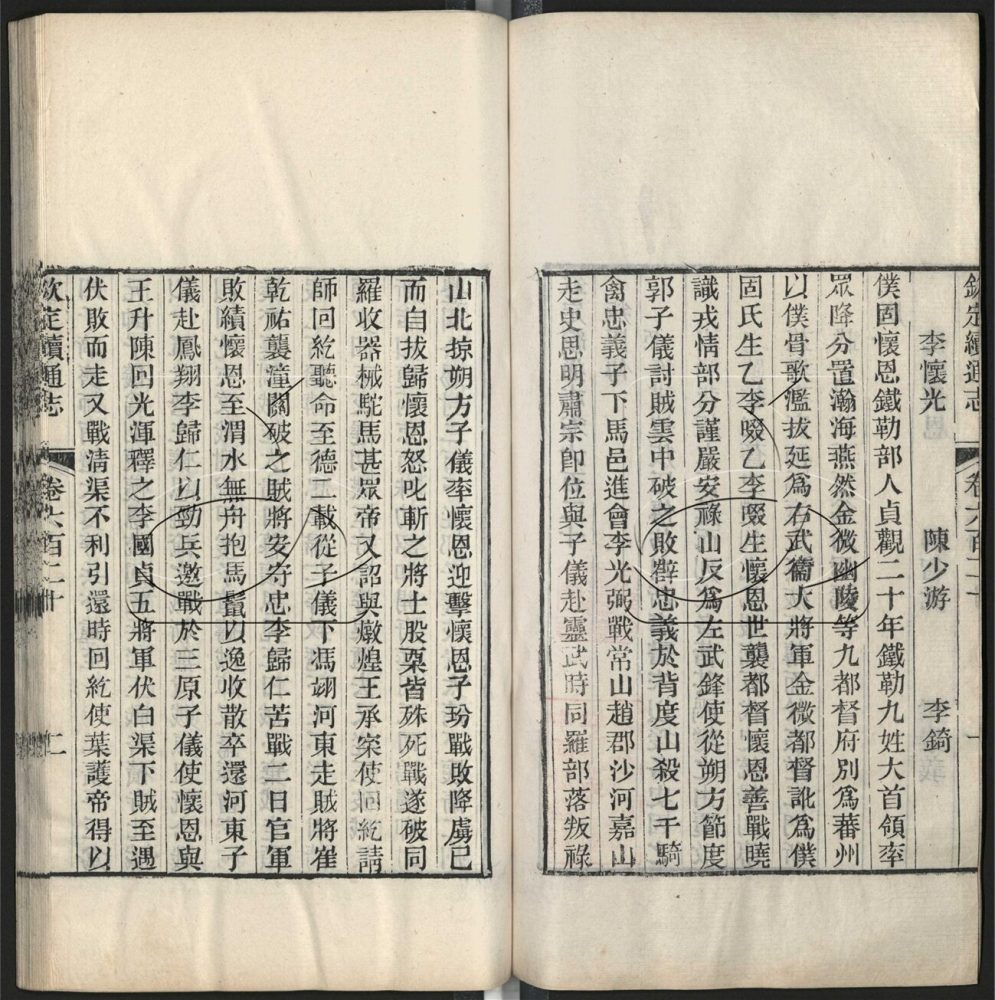 欽定續通志 卷六百二十 一
李懷光 陳少游 李錡
僕固懷恩鐵勒部人貞觀二十年鐵勒九姓大首領率
眾降分置瀚海燕然金微幽陵等九都督府別爲蕃州
以僕骨歌濫拔延爲右武衞大將軍金微都督訛爲僕
固氏生乙李啜乙李啜生懷恩世襲都督懷恩善戰曉
識戎情部分謹嚴安祿山反爲左武鋒使從朔方節度
郭子儀討賊雲中破之敗薛忠義於背度山殺七千騎
禽忠義子下馬邑進會李光弼戰常山趙郡沙河嘉山
走史思明肅宗卽位與子儀赴靈武時同羅部落叛祿
山北掠朔方子儀率懷恩迎擊懷恩子玢戰敗降虜已
而自拔歸懷恩怒叱斬之將士股栗皆殊死戰遂破同
羅收器械駝馬甚眾帝又詔與燉煌王承寀使回紇請
師回紇聽命至德二載從子儀下馮翊河東走賊將崔
乾祐襲潼關破之賊將安守忠李歸仁苦戰二日官軍
敗績懷恩至渭水無舟抱馬鬣以逸收散卒還河東子
儀赴鳳翔李歸仁以勁兵邀戰於三原子儀使懷恩與
王升陳回光渾釋之李國貞五將軍伏白渠下賊至遇
伏敗而走又戰清渠不利引還時回紇使葉護帝得以
欽定續通志 卷六百二十 二